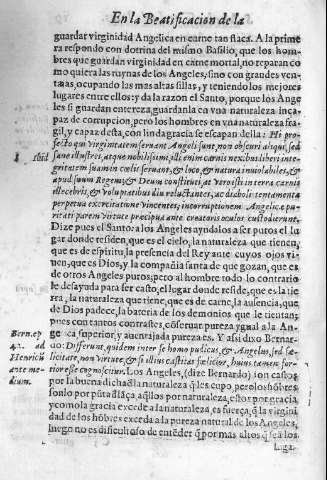 En la Beatificacion de la
guardar virginidad Angelica en carne tan flaca. A la prime
ra respondo con dotrina del mismo Basilio, que los hom-
bres que guardan virginidad en carne mortal, no reparan co
mo quiera las ruynas de los Angeles, sino con grandes ven-
tajas, ocupando las mas altas sillas, y teniendo los mejores
lugares entre ellos: y da la razon el Santo, porque los Ange
les si guardan entereza, guardanla en vna naturaleza incа
paz de corrupcion, pero los hombres en vna naturaleza fra-
gil, y capaz desta, con linda gracia se escapan della: Hi pro-
fectò qui Virginitatem seruant Angeli sunt, non obscuri aliqui, sed
1 Ibid. sanè illustres, atque nobilissimi, illi enim carnis nexibus liberi inte-
gritatem suam in cœlis seruant, & loco, & natura inuiolabiles, &
apud suum Regem, & Deum constituti, at Verò isti in terra carnis
illecebris, & voluptatibus diu reluctantes, ac diaboli tentamenta
perpetua exercitatione vincentes, interruptionem Angelicæ pu-
ritati parem virtute præcipua ante creatoris oculos custodierunt.
Dize pues el Santo: a los Angeles ayudalos a ser puros el lu
gar donde residen, que es el cielo, la naturaleza que tienen,
que es de espiritu, la presencia del Rey ante cuyos ojos vi-
uen, que es Dios, y la compañia santa de que gozan, que es
de otros Angeles puros; pero al hombre todo lo contrario
le desayuda para ser casto, el lugar donde reside, que es la tie
rra, la naturaleza que tiene, que es de carne, la ausencia, que
de Dios padece, la bateria de los demonios que le tientan;
pues con tantos contrastes, cõseruar pureza ygual a la An-
Bern. ep gelica superior, y auentajada pureza es. Y assi dixo Bernar-
42. ad do: Differunt quidem inter se homo pudicus, & Angelus, sed fœ-
Henricũ licitate, non virtute, & si illius castitas fœlicior, huius tamen for-
ante me- tior esse cognoscitur. Los Angeles, (dize Bernardo) son castos
dium. por la buena dicha d̃ la naturaleza q̃ les cupo, pero los hõbres
sonlo por pura gracia, aq̃llos por naturaleza, estos por gracia,
y como la gracia excede a la naturaleza, es fuerça, q̃ la virgini
dad de los hõbres exceda a la pureza natural de los Angeles,
luego no es dificultoso de entẽder q̃ por mas altos q̃ seã los
Luga-